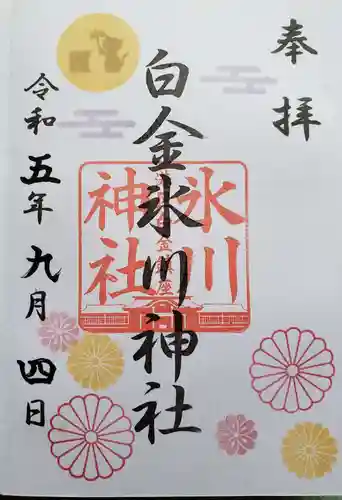 奉拝
白金氷川神社
氷川
神社
令和五年九月四日